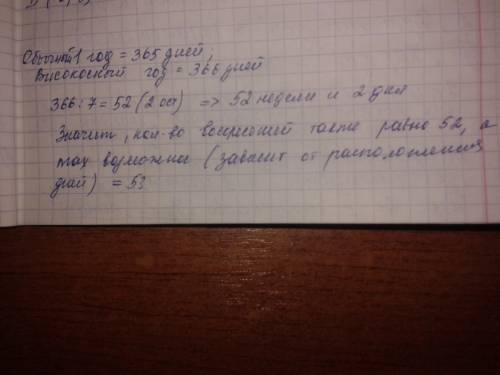 Обычный 1 год = 365 дней,
Високосный год = 366 дней
366 : 7 = 52 (2 ост) => 52 недели и 2 дня
Значит, кол-во воскресений также равно 52, а
max возможное (зависит от расположения
дней) = 53